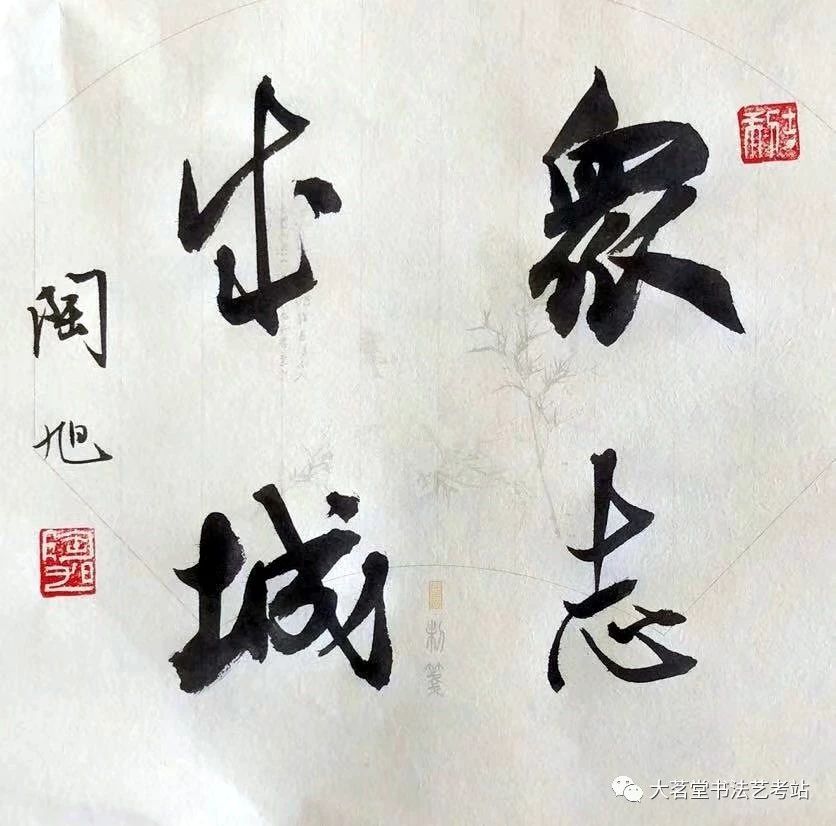 眾志
成城
陶旭
大茗堂书法艺考站